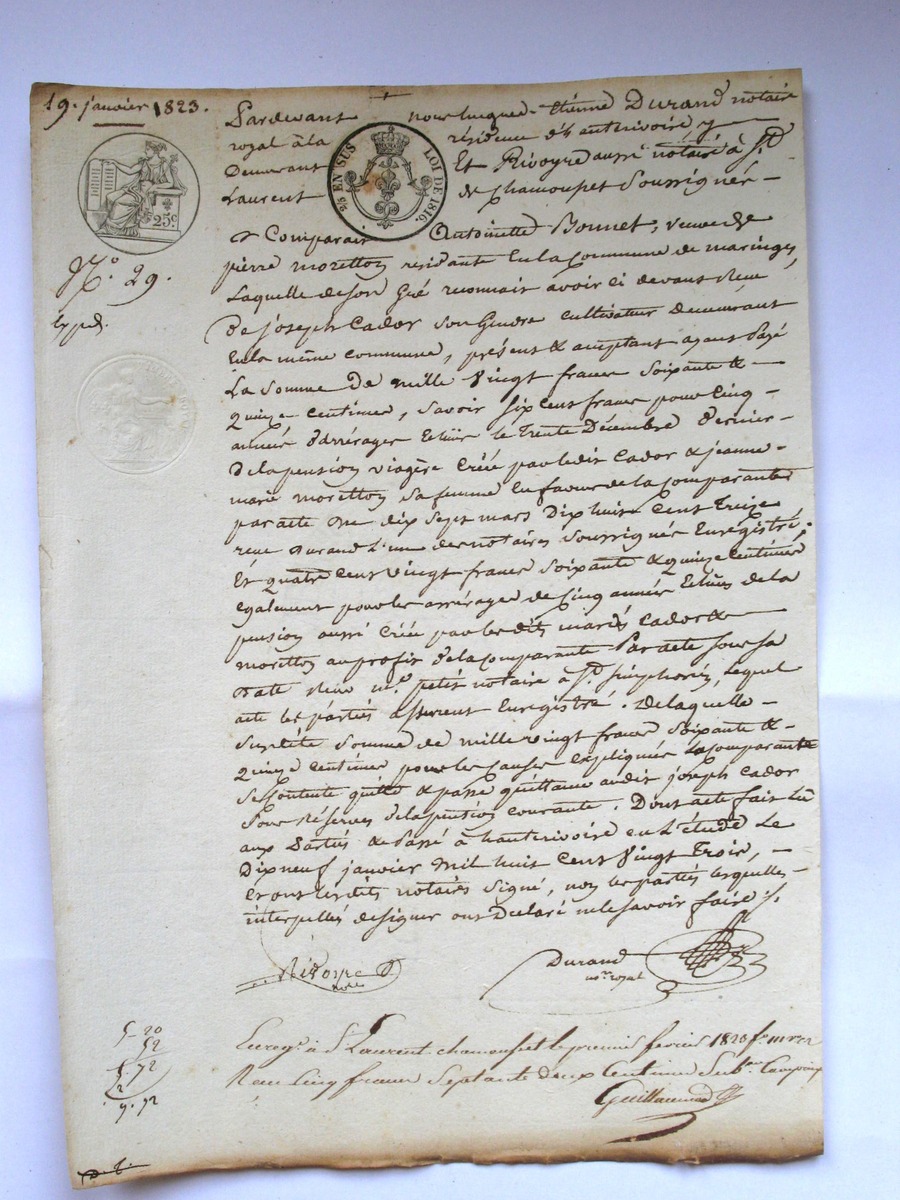 19. janvier 1823.
Pardevant nous Luc Etienne Durand notaire
royal à la résidence d'hauterivoire y
Demeurant Et Rivoyre aussi notaire à St.
Laurent de Chamousset Soussignés —
5/5 EN SUS LOI DE 1816.
25c.
N.o 29.
Expd.
& Comparait Antoinette Bonnet, veuve de
pierre moretton residante En la Commune de maringes,
Laquelle de son Gré reconnait avoir ci devant Reçu
De joseph Cador son Gendre cultivateur Demeurant
En la même commune, présent & acceptant ayant Payé
La somme De mille Vingt francs Soixante &
Quinze centimes, savoir six cent francs pour Cinq
années d'arrérages Echus le Trente Décembre dernier
De la pension viagère Créée par ledit Cador & jeanne
marie moretton sa femme En faveur de la Comparante
par acte du dix sept mars Dix huit cent Treize
reçu Durand L'un des notaires Soussignés Enregistré;
Et quatre cent vingt francs Soixante & quinze Centimes
Egalement pour les arrérages de Cinq années Echues de la
pension aussi Créée par les dits mariés Cador &
moretton au profit De la comparante Par acte sous sa
Date Reçu m.e petit notaire à St. Simphorien, Lequel
acte les parties assurent Enregistré. De laquelle
Susdite Somme de mille vingt francs Soixante &
Quinze Centimes pour les causes Expliquées La comparante
se Contente quitte & passe quittance audit joseph Cador
sous Réserves de la pension courante. Dont acte fait Lu
aux Parties & Passé à hauterivoire en L'étude Le
Dixneuf janvier Mil huit Cent Vingt Trois,
Et ont lesdits notaires Signé, non les parties lesquelles
interpellés de signer ont Déclaré ne le savoir faire ./.
Rivoyre
nore
Durand
nre royal
5-20
52
5.72
2.
7.72
Enreg. à St. Laurent chamousset le premier fevrier 1823 fo.
Reçu Cinq francs Septante deux Centimes Subon. Comprise
Guillaumod